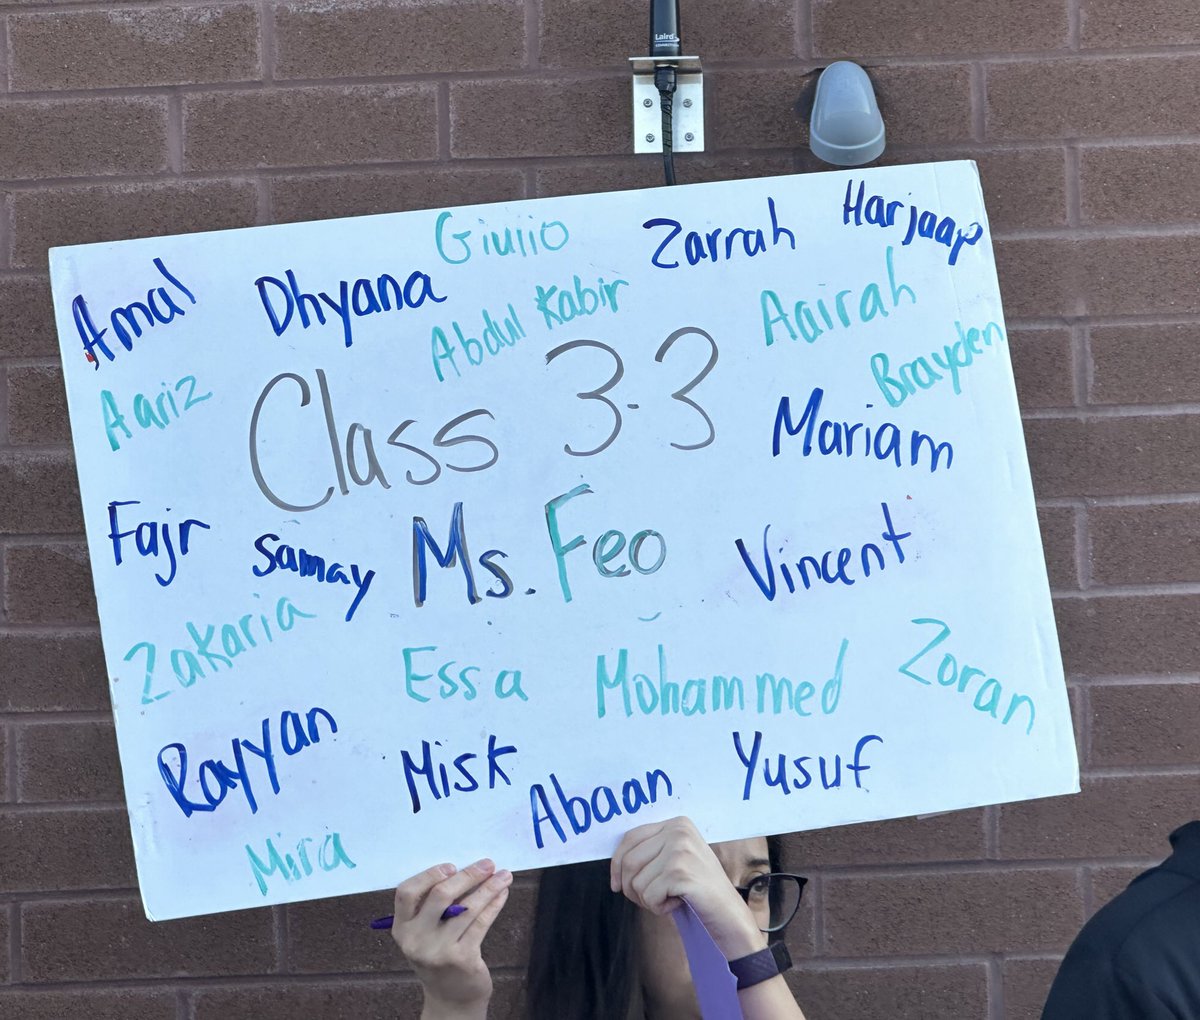 Laird
CONNECTIVITY
Harjaap
Giulio
Zarrah
Amal
Dhyana
Abdul Kabir
Aairah
Brayden
Aariz
Class 3-3
Mariam
Fajr
Samay
Ms. Feo
Vincent
Zakaria
Essa
Mohammed
Zoran
Rayyan
Misk
Abaan
Yusuf
Mira